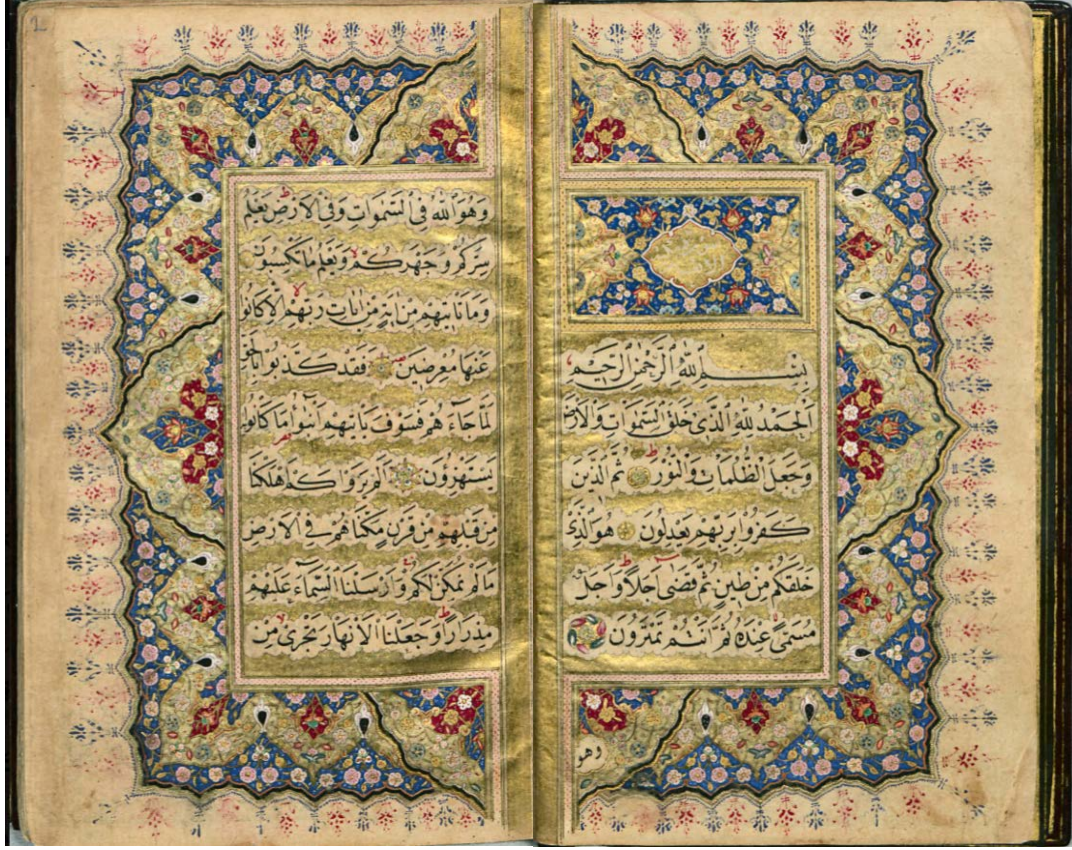 بِسْمِ اللّٰهِ الرَّحْمٰنِ الرَّحِيمِ
اَلْحَمْدُ لِلّٰهِ الَّذِى خَلَقَ السَّمٰوَاتِ وَالْاَرْضَ
وَجَعَلَ الظُّلُمَاتِ وَالنُّورَ ثُمَّ الَّذِينَ
كَفَرُوا بِرَبِّهِمْ يَعْدِلُونَ هُوَ الَّذِى
خَلَقَكُمْ مِنْ طِينٍ ثُمَّ قَضٰى اَجَلًا وَاَجَلٌ
مُسَمًّى عِنْدَهُ ثُمَّ اَنْتُمْ تَمْتَرُونَ
وهو
وَهُوَ اللّٰهُ فِى السَّمٰوَاتِ وَفِى الْاَرْضِ يَعْلَمُ
سِرَّكُمْ وَجَهْرَكُمْ وَيَعْلَمُ مَا تَكْسِبُونَ
وَمَا تَاْتِيهِمْ مِنْ اٰيَةٍ مِنْ اٰيَاتِ رَبِّهِمْ اِلَّا كَانُوا
عَنْهَا مُعْرِضِينَ فَقَدْ كَذَّبُوا بِالْحَقِّ
لَمَّا جَاءَهُمْ فَسَوْفَ يَاْتِيهِمْ اَنْبٰٓؤُا مَا كَانُوا بِهِ
يَسْتَهْزِؤُنَ اَلَمْ يَرَوْا كَمْ اَهْلَكْنَا
مِنْ قَبْلِهِمْ مِنْ قَرْنٍ مَكَّنَّاهُمْ فِى الْاَرْضِ
مَا لَمْ نُمَكِّنْ لَكُمْ وَاَرْسَلْنَا السَّمَاءَ عَلَيْهِمْ
مِدْرَارًا وَجَعَلْنَا الْاَنْهَارَ تَجْرِى مِنْ